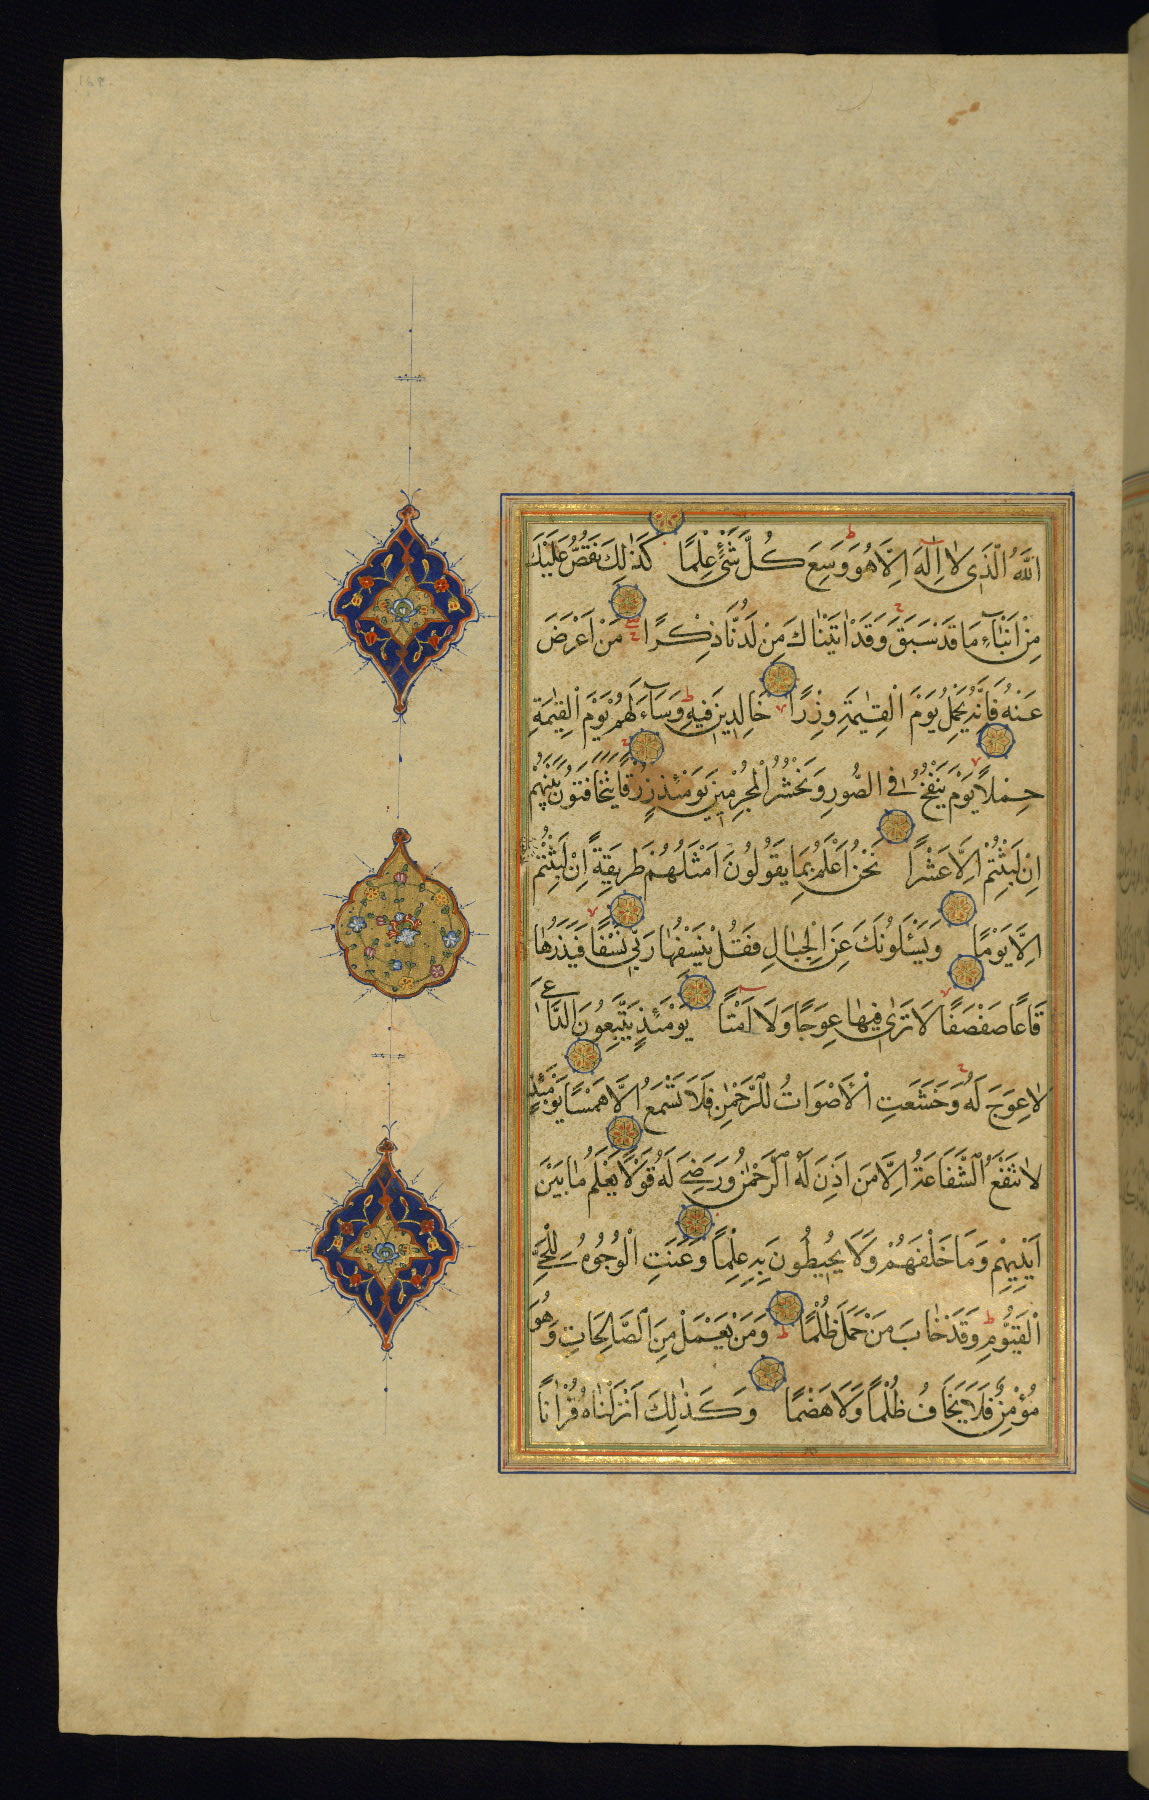 اللَّهُ الَّذِي لَا إِلَٰهَ إِلَّا هُوَ وَسِعَ كُلَّ شَيْءٍ عِلْمًا كَذَٰلِكَ نَقُصُّ عَلَيْكَ
مِنْ اَنْبَآءِ مَا قَدْ سَبَقَ وَقَدْ اٰتَيْنَاكَ مِنْ لَدُنَّا ذِكْرًا مَنْ اَعْرَضَ
عَنْهُ فَاِنَّهُ يَحْمِلُ يَوْمَ الْقِيٰمَةِ وِزْرًا خَالِدِينَ فِيهِ وَسَآءَ لَهُمْ يَوْمَ الْقِيٰمَةِ
حِمْلًا يَوْمَ يُنْفَخُ فِي الصُّورِ وَنَحْشُرُ الْمُجْرِمِينَ يَوْمَئِذٍ زُرْقًا يَتَخَافَتُونَ بَيْنَهُمْ
اِنْ لَبِثْتُمْ اِلَّا عَشْرًا نَحْنُ اَعْلَمُ بِمَا يَقُولُونَ اَمْثَلُهُمْ طَرِيقَةً اِنْ لَبِثْتُمْ
اِلَّا يَوْمًا وَيَسْـَٔلُونَكَ عَنِ الْجِبَالِ فَقُلْ يَنْسِفُهَا رَبِّي نَسْفًا فَيَذَرُهَا
قَاعًا صَفْصَفًا لَا تَرٰى فِيهَا عِوَجًا وَلَا اَمْتًا يَوْمَئِذٍ يَتَّبِعُونَ الدَّاعِيَ
لَا عِوَجَ لَهُ وَخَشَعَتِ الْاَصْوَاتُ لِلرَّحْمٰنِ فَلَا تَسْمَعُ اِلَّا هَمْسًا يَوْمَئِذٍ
لَا تَنْفَعُ الشَّفَاعَةُ اِلَّا مَنْ اَذِنَ لَهُ الرَّحْمٰنُ وَرَضِيَ لَهُ قَوْلًا يَعْلَمُ مَا بَيْنَ
اَيْدِيهِمْ وَمَا خَلْفَهُمْ وَلَا يُحِيطُونَ بِهِ عِلْمًا وَعَنَتِ الْوُجُوهُ لِلْحَيِّ
الْقَيُّومِ وَقَدْ خَابَ مَنْ حَمَلَ ظُلْمًا وَمَنْ يَعْمَلْ مِنَ الصَّالِحَاتِ وَهُوَ
مُؤْمِنٌ فَلَا يَخَافُ ظُلْمًا وَلَا هَضْمًا وَكَذٰلِكَ اَنْزَلْنَاهُ قُرْاٰنًا